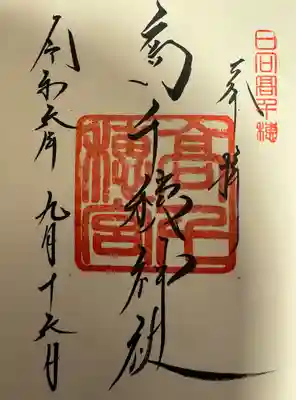 日向高千穂
奉拝
高千穂神社
高千穂宮
令和六年 九月十六日